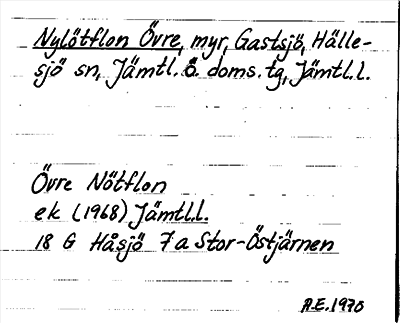 Nylötflon Övre, myr, Gastsjö, Hälle-
sjö sn, Jämtl. Ö. doms. tg, Jämtl.l.
Övre Nötflon
ek (1968) Jämtl.l.
18 G Håsjö 7 a Stor-Östjärnen
A.E. 1970